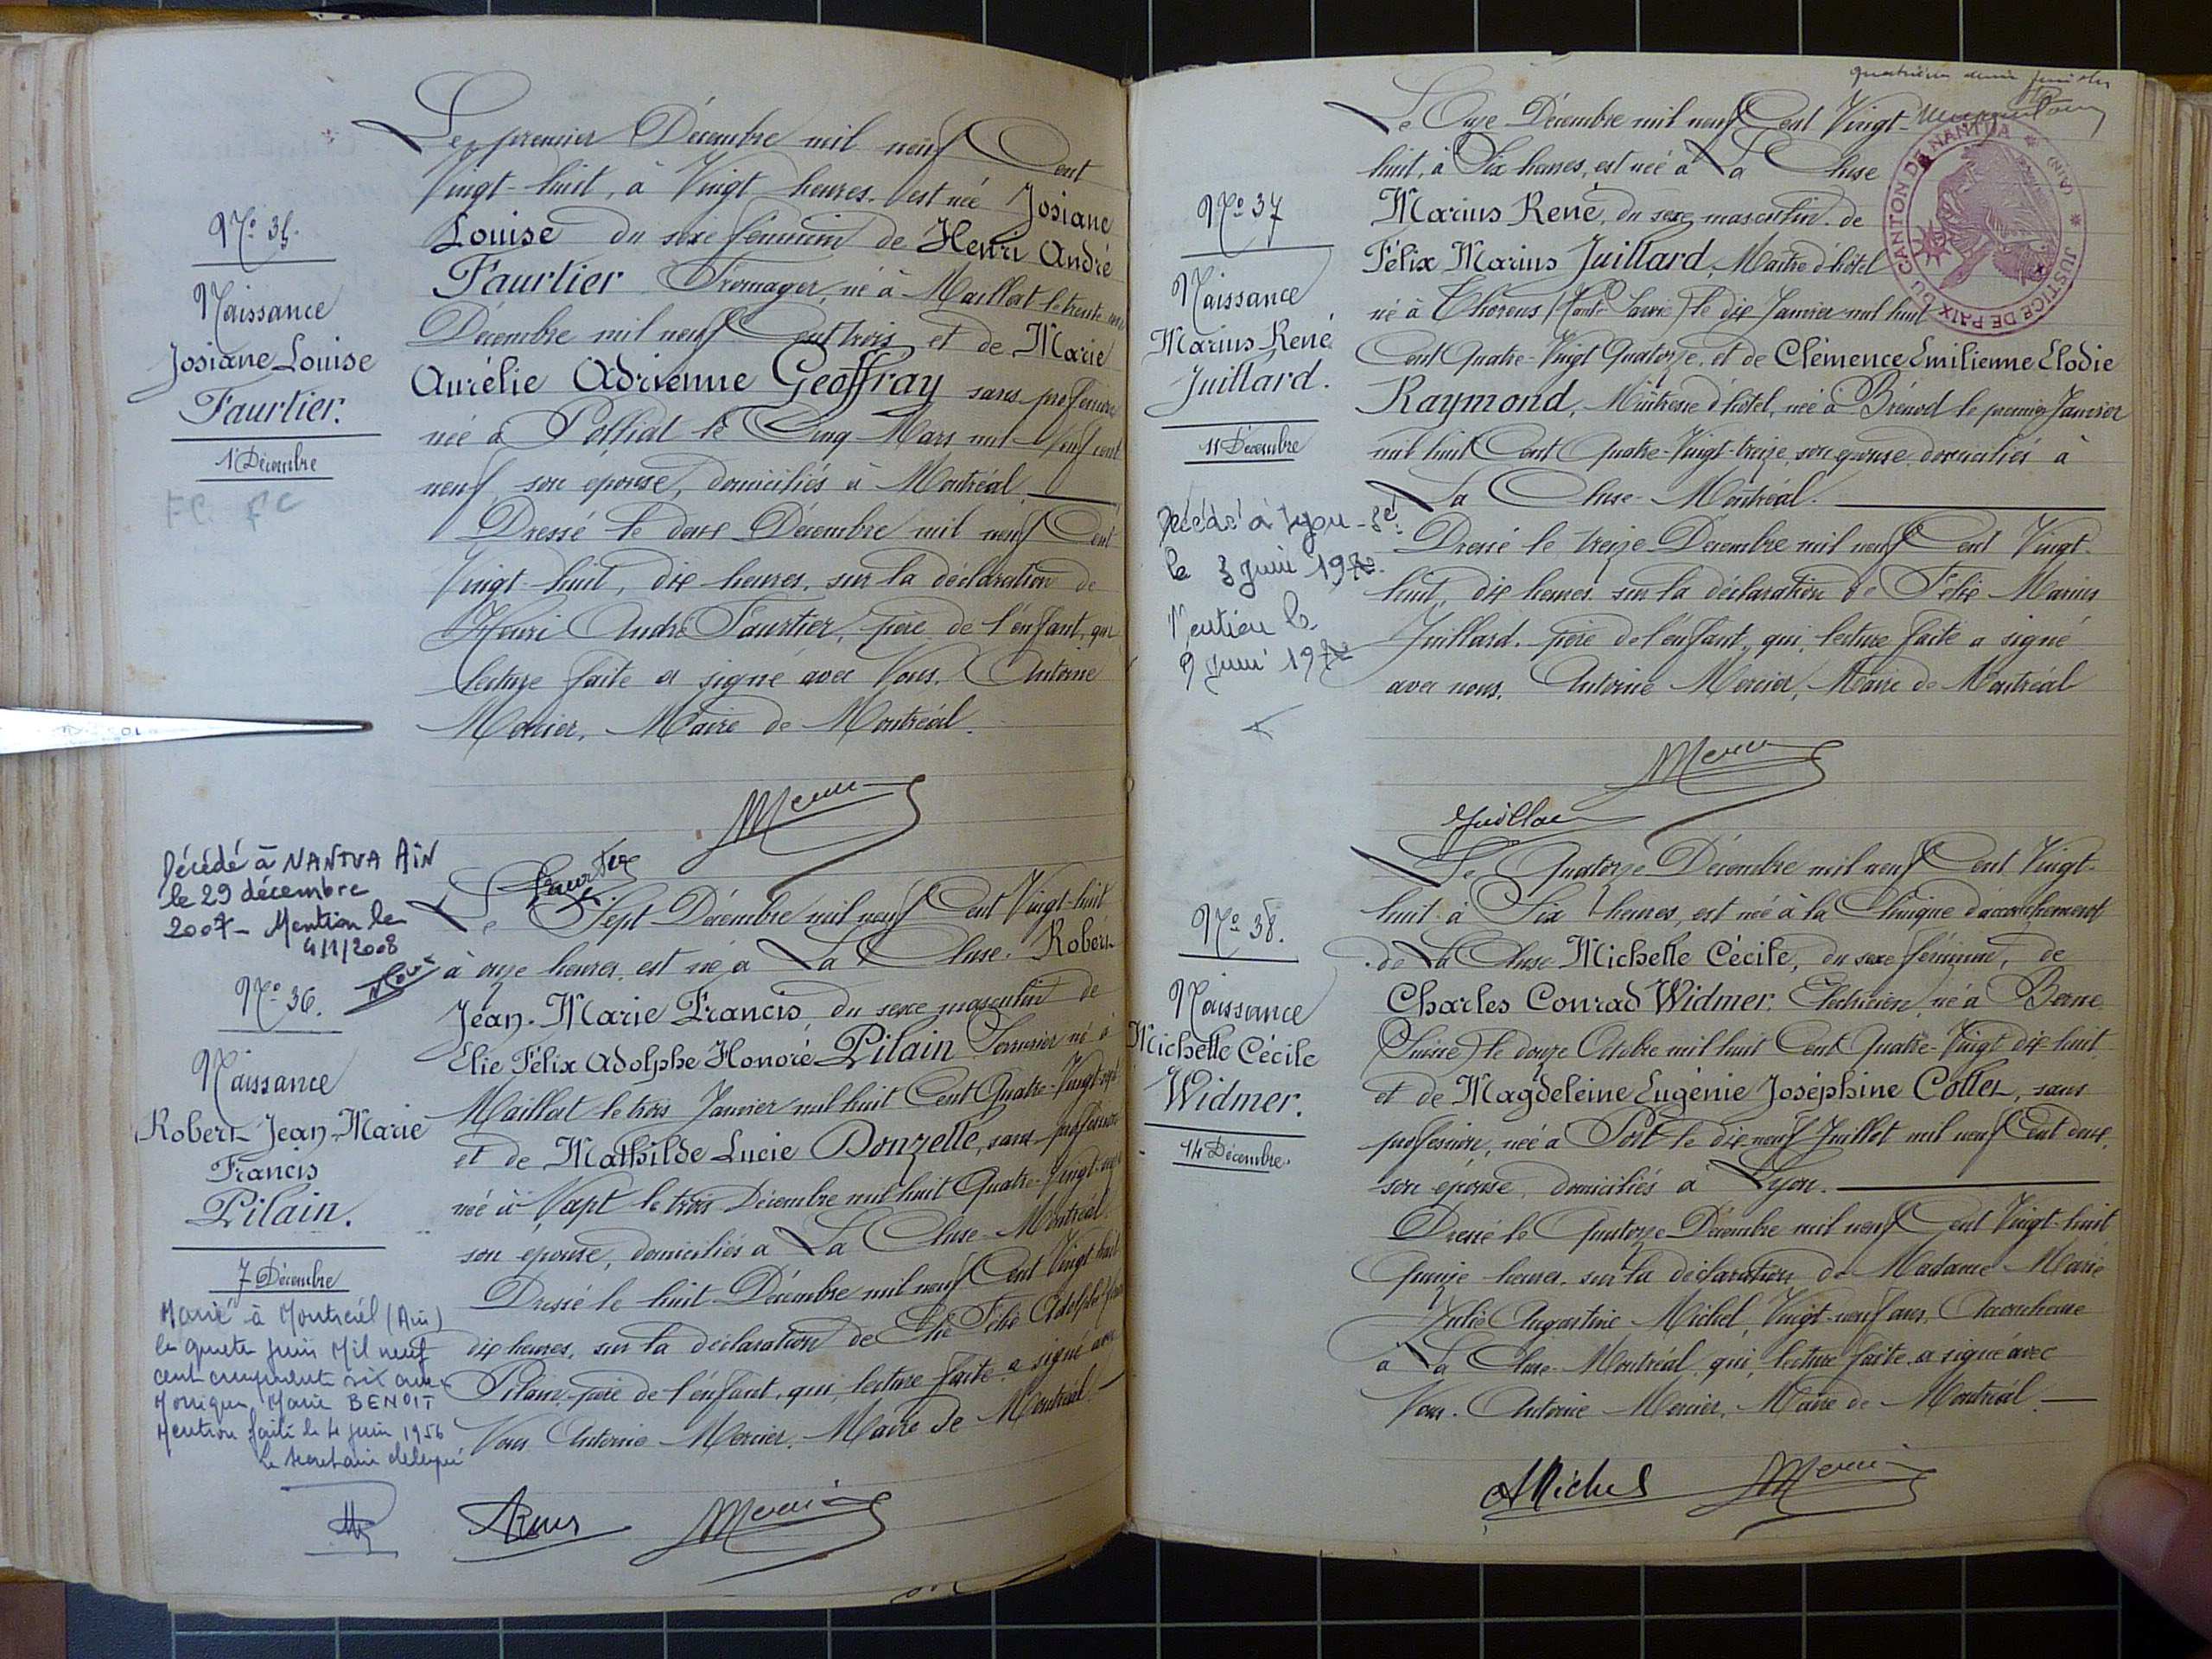 N° 35.
Naissance
Josiane Louise
Faurtier.
1 Décembre
Le premier Décembre mil neuf Cent
Vingt-huit, à Vingt heures, est née Josiane
Louise du sexe féminin de Henri André
Faurtier Fromager, né à Maillat le trente un
Décembre mil neuf Cent trois et de Marie
Aurélie Adrienne Geoffray sans profession
née à Polliat le Cinq Mars mil neuf cent
neuf, son épouse, domiciliés à Montréal.
Dressé le deux Décembre mil neuf Cent
Vingt-huit, dix heures, sur la déclaration de
Henri André Faurtier, père de l'enfant, qui
lecture faite a signé avec Nous, Antoine
Mercier, Maire de Montréal.
Décédé à NANTUA AIN
le 29 décembre
2007 - Mention le
4/1/2008
N° 36.
Naissance
Robert Jean-Marie
Francis
Pilain.
7 Décembre
Marié à Montréal (Ain)
le quatre juin Mil neuf
cent cinquante six avec
Monique, Marie BENOIT
Mention faite le 4 juin 1956
le secrétaire délégué
Le Sept Décembre mil neuf Cent Vingt-huit
à onze heures, est né à La Cluse. Robert
Jean-Marie Francis du sexe masculin de
Élie Félix Adolphe Honoré Pilain Serrurier né à
Maillat le trois Janvier mil huit Cent Quatre-Vingt-sept
et de Mathilde Lucie Donzelle, sans profession
née à Napt le trois Décembre mil huit Quatre-Vingt
son épouse, domiciliés à La Cluse-Montréal.
Dressé le huit Décembre mil neuf Cent Vingt huit
dix heures, sur la déclaration de Elie Félix Adolphe
Pilain père de l'enfant, qui, lecture faite a signé avec
Nous Antoine Mercier, Maire de Montréal.
N° 37
Naissance
Marius René
Juillard.
11 Décembre
Décédé à Lyon - 3e
le 3 juin 19
Mention le
9 juin 19
JUSTICE DE PAIX DU CANTON DE NANTUA (AIN)
Le Onze Décembre mil neuf Cent Vingt-
huit, à Six heures, est né à La Cluse
Marius René, du sexe masculin de
Félix Marius Juillard, Maître d'hôtel
né à Thorens (Haute Savoie) le dix Janvier mil huit
Cent Quatre-Vingt Quatorze, et de Clémence Emilienne Elodie
Raymond, Maîtresse d'hôtel, née à Brénod le premier Janvier
mil huit Cent Quatre-Vingt-treize, son épouse domiciliés à
La Cluse-Montréal.
Dressé le treize Décembre mil neuf Cent Vingt-
huit, dix heures sur la déclaration de Félix Marius
Juillard, père de l'enfant, qui, lecture faite a signé
avec nous, Antoine Mercier, Maire de Montréal
N° 38.
Naissance
Michelle Cécile
Widmer.
14 Décembre
Le Quatorze Décembre mil neuf Cent Vingt-
huit à Six heures, est née à la Clinique d'accouchement
de La Cluse Michelle Cécile, du sexe féminin, de
Charles Conrad Widmer, Electricien, né à Berne
(Suisse) le douze Octobre mil huit Cent Quatre-Vingt dix huit
et de Magdeleine Eugénie Joséphine Collet, sans
profession, née à Port le dix neuf Juillet mil neuf Cent deux,
son épouse, domiciliés à Lyon.
Dressé le Quatorze Décembre mil neuf Cent Vingt-huit
Quinze heures, sur la déclaration de Madame Marie
Julie Augustine Michel, Vingt-neuf ans, Accoucheuse
à La Cluse-Montréal, qui, lecture faite, a signé avec
Nous. Antoine Mercier, Maire de Montréal.
AMichel